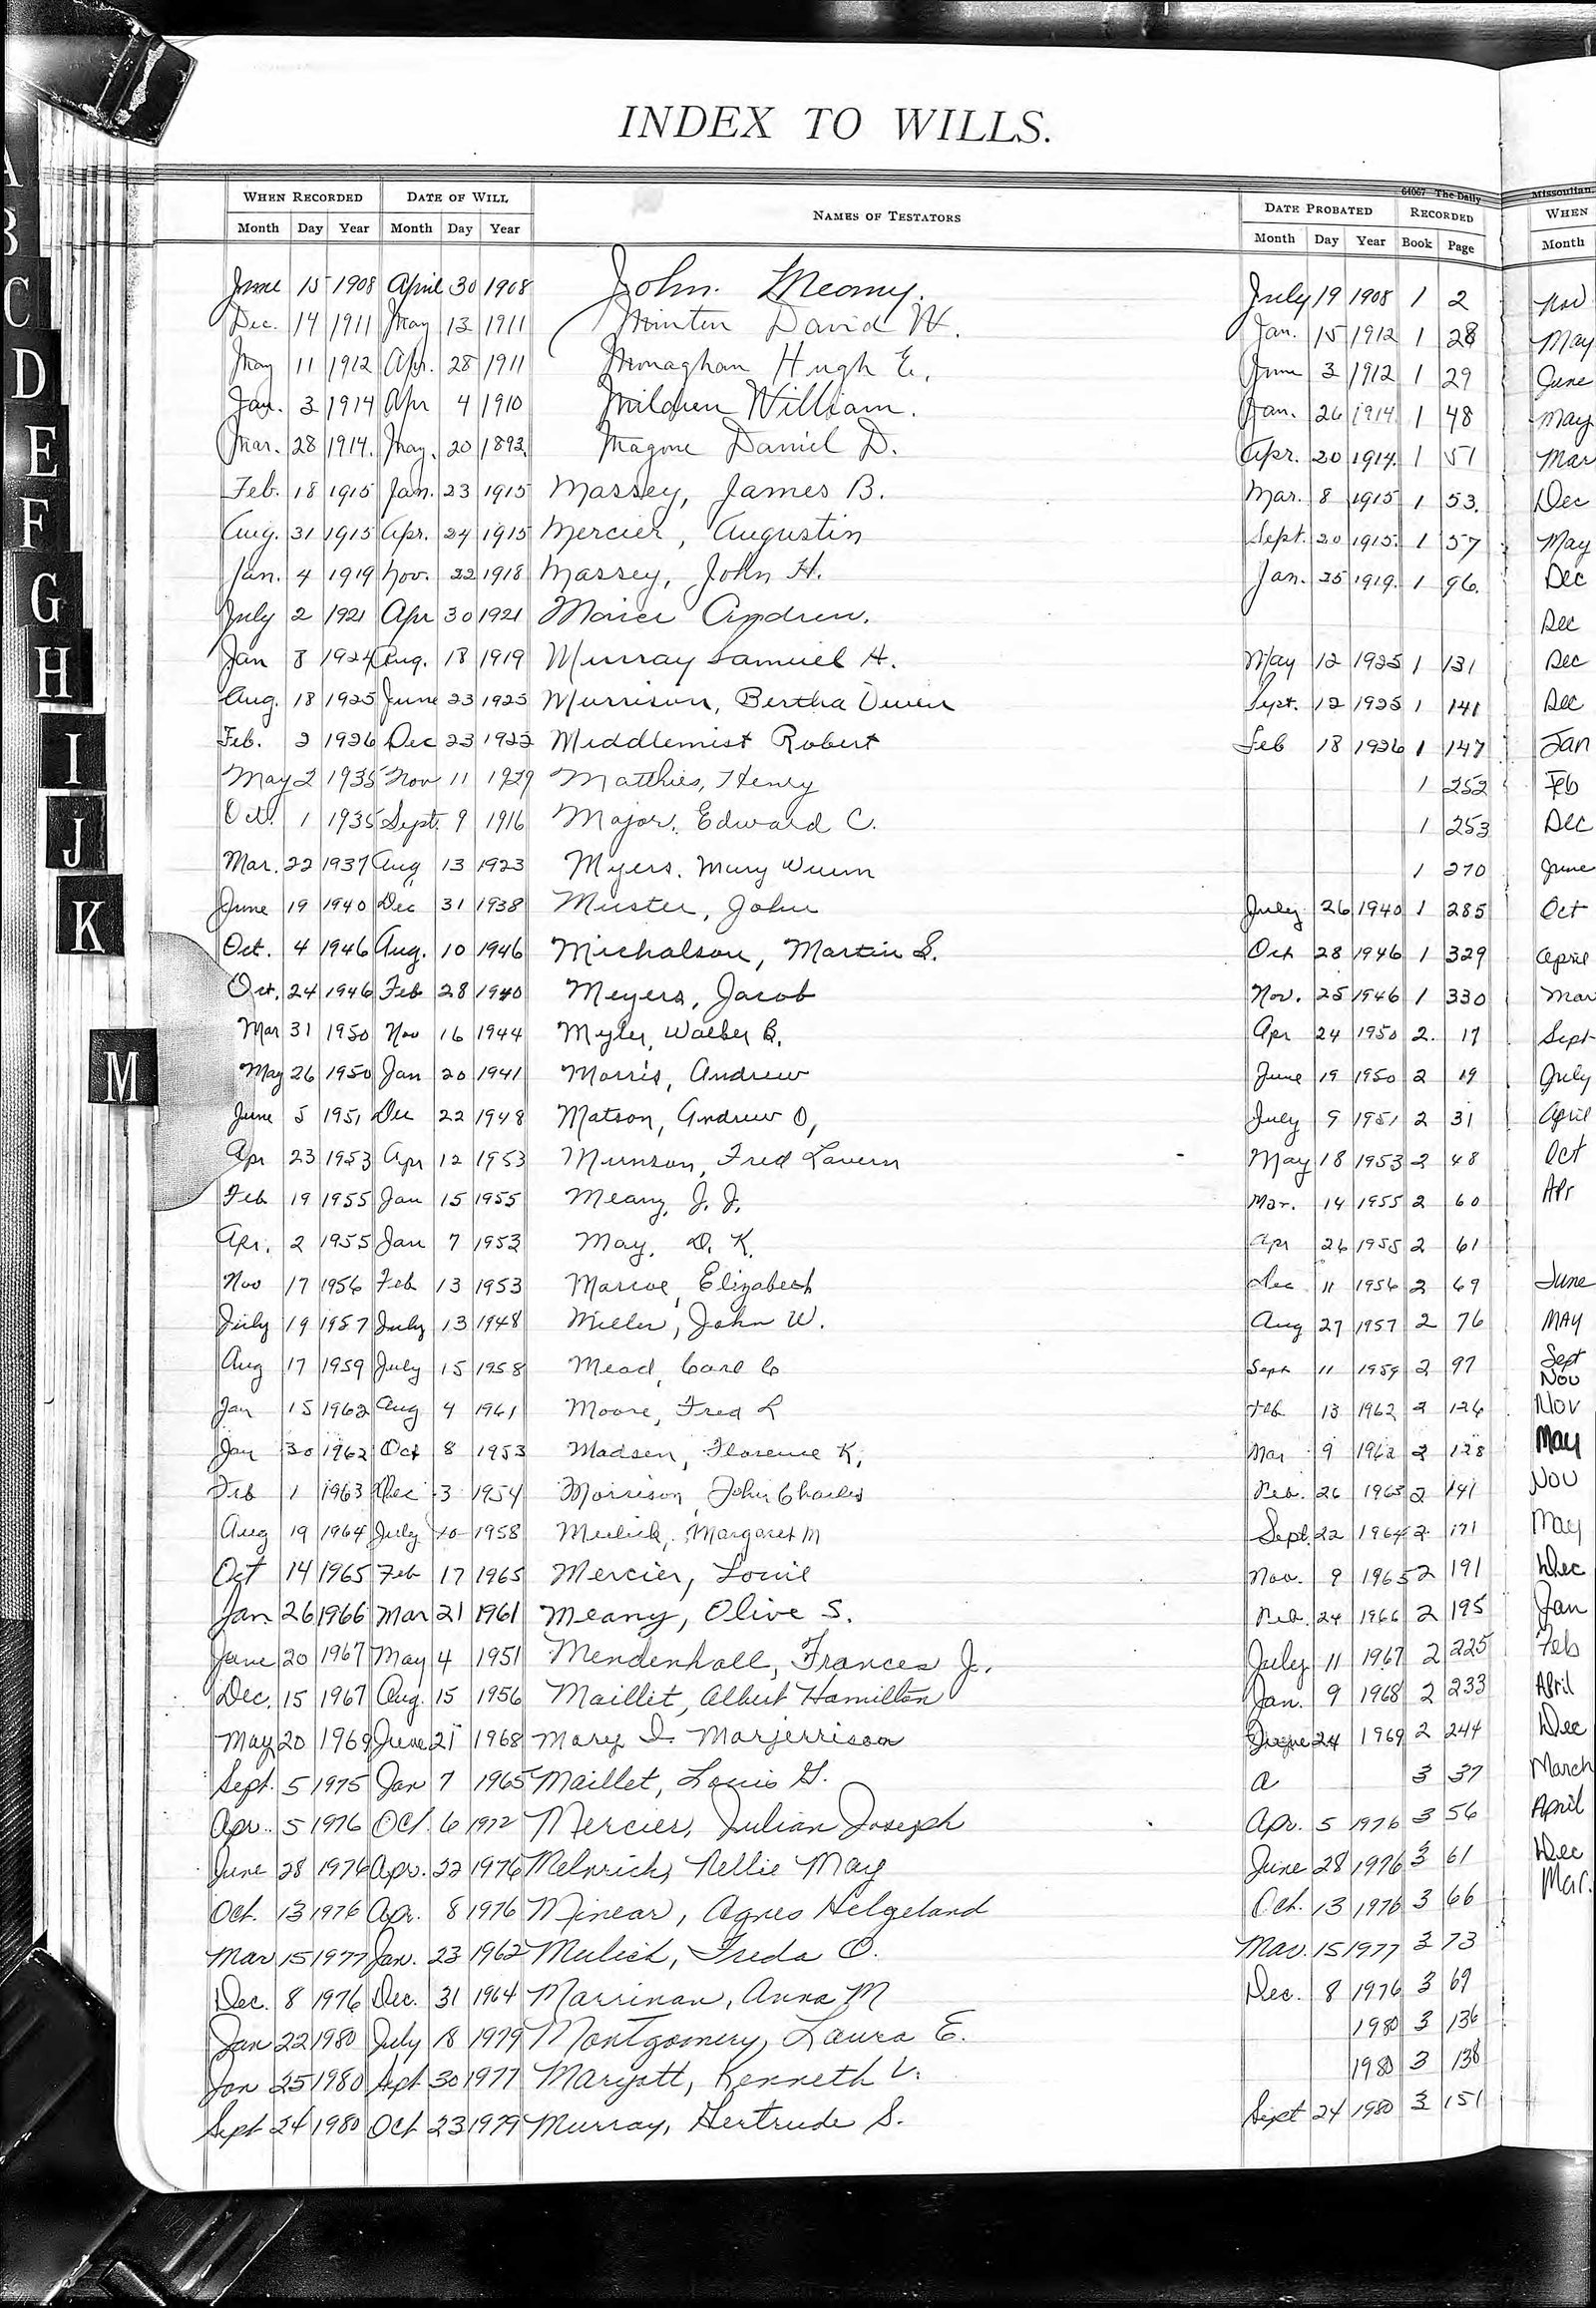 INDEX TO WILLS.
64067 The Daily Missoulian
WHEN RECORDED DATE OF WILL NAMES OF TESTATORS DATE PROBATED RECORDED WHEN
Month Day Year Month Day Year Month Day Year Book Page Month
June 15 1908 April 30 1908 John Meany. July 19 1908 1 2 Nov
Dec. 14 1911 May 13 1911 Minten David W. Jan. 15 1912 1 28 May
May 11 1912 Apr. 28 1911 Monaghan Hugh E. June 3 1912 1 29 June
Jan. 3 1914 Apr 4 1910 Mildren William. Jan. 26 1914 1 48 May
Mar. 28 1914. May. 20 1893 Magone Daniel D. Apr. 20 1914. 1 51 Mar
Feb. 18 1915 Jan. 23 1915 Massey, James B. Mar. 8 1915 1 53. Dec
Aug. 31 1915 Apr. 24 1915 Mercier, Augustin Sept. 20 1915. 1 57 May
Jan. 4 1919 Nov. 22 1918 Massey, John H. Jan. 25 1919. 1 96. Dec
July 2 1921 Apr 30 1921 Andrew. Dec
Jan 8 1924 Aug. 18 1919 Murray Samuel H. May 12 1925 1 131 Dec
Aug. 18 1925 June 23 1925 Murrison, Bertha Owen Sept. 12 1925 1 141 Dec
Feb. 2 1926 Dec 23 1922 Middlemist Robert Feb 18 1926 1 147 Jan
May 2 1935 Nov 11 1929 Matthies, Henry 1 252 Feb
Oct. 1 1935 Sept. 9 1916 Major, Edward C. 1 253 Dec
Mar. 22 1937 Aug 13 1923 Myers. Mary 1 270 June
June 19 1940 Dec 31 1938 Muster, John July 26 1940 1 285 Oct
Oct. 4 1946 Aug. 10 1946 Michalson, Martin S. Oct 28 1946 1 329 April
Oct. 24 1946 Feb 28 1940 Meyers, Jacob Nov. 25 1946 1 330 Mar
Mar 31 1950 Nov 16 1944 Myler, Walker B. Apr 24 1950 2. 17 Sept
May 26 1950 Jan 20 1941 Morris, Andrew June 19 1950 2 19 July
June 5 1951 Dec 22 1948 Matson, Andrew O, July 9 1951 2 31 April
Apr 23 1953 Apr 12 1953 Munson, Fred Lavern May 18 1953 2 48 Oct
Feb 19 1955 Jan 15 1955 Meany, J. J. Mar. 14 1955 2 60 Apr
Apr. 2 1955 Jan 7 1953 May, D. K. Apr 26 1955 2 61
Nov 17 1956 Feb 13 1953 Marcoe, Elizabeth Dec 11 1956 2 69 June
July 19 1957 July 13 1948 Miller, John W. Aug 27 1957 2 76 MAY
Aug 17 1959 July 15 1958 Mead, Carl C Sept 11 1959 2 97 Sept
Nov
Jan 15 1962 Aug 4 1961 Moore, Fred L Feb 13 1962 2 126 Nov
Jan 30 1962 Oct 8 1953 Madsen, Florence K, Mar 9 1962 2 128 May
Feb 1 1963 Dec 3 1954 Morrison, John Charles Feb. 26 1963 2 141 Nov
Aug 19 1964 July 10 1958 Mulick, Margaret M Sept. 22 1964 2 171 May
Oct 14 1965 Feb 17 1965 Mercier, Louie Nov. 9 1965 2 191 Dec
Jan. 26 1966 Mar 21 1961 Meany, Olive S. Feb. 24 1966 2 195 Jan
June 20 1967 May 4 1951 Mendenhall, Frances J. July 11 1967 2 225 Feb
Dec. 15 1967 Aug. 15 1956 Maillet, Albert Hamilton Jan. 9 1968 2 233 April
May 20 1969 June 21 1968 Mary I. Marjerrison June 24 1969 2 244 Dec
Sept. 5 1975 Jan 7 1965 Maillet, Louis G. a 3 37 March
Apr. 5 1976 Oct. 6 1972 Mercier, Julian Joseph Apr. 5 1976 3 56 April
June 28 1976 Apr. 22 1976 Melnrich, Nellie May June 28 1976 3 61 Dec
Oct. 13 1976 Apr. 8 1976 Minear, Agnes Helgeland Oct. 13 1976 3 66 Mar.
Mar 15 1977 Jan. 23 1962 Mulick, Freda O. Mar. 15 1977 3 73
Dec. 8 1976 Dec. 31 1964 Marrinan, Anna M Dec. 8 1976 3 69
Jan 22 1980 July 18 1979 Montgomery, Laura E. 1980 3 136
Jan 25 1980 Sept 30 1977 Maryott, Kenneth V. 1980 3 138
Sept 24 1980 Oct 23 1979 Murray, Gertrude S. Sept 24 1980 3 151
A
B
C
D
E
F
G
H
I
J
K
M